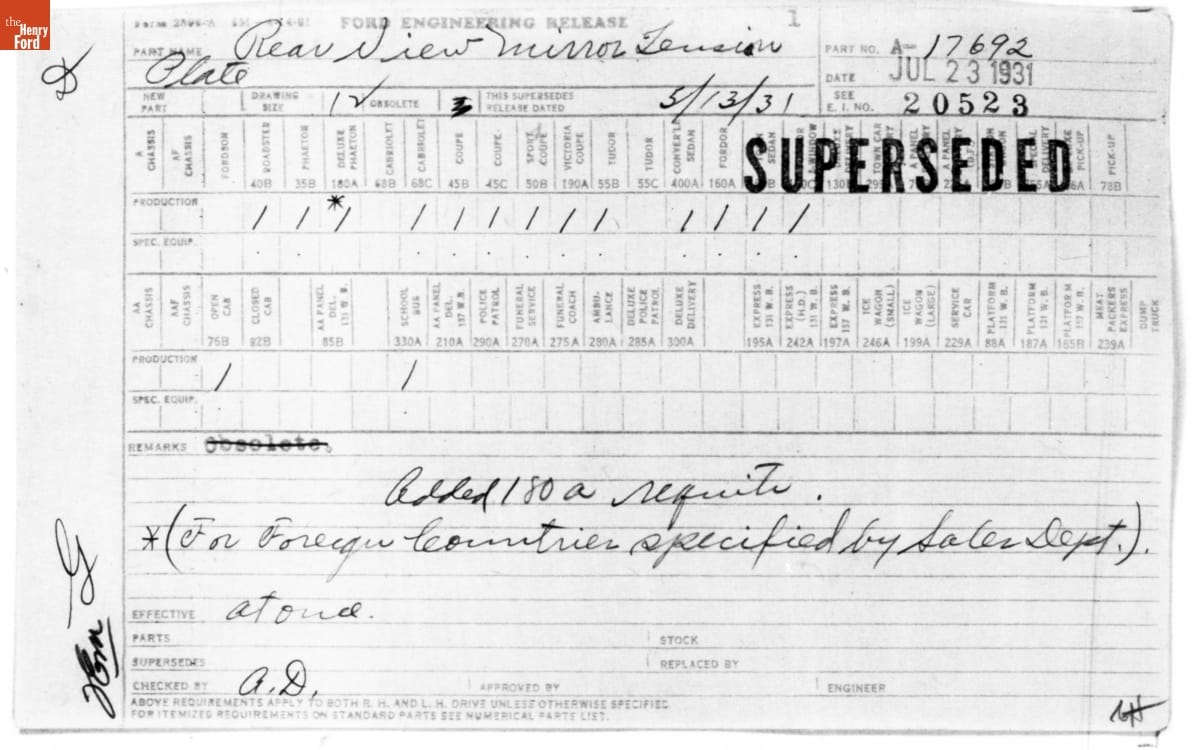 the
Henry
Ford
FORD ENGINEERING RELEASE 1
PART NAME Rear View Mirror Tension
Plate
PART NO. A-17692
DATE JUL 23 1931
SEE
E. I. NO. 20523
NEW PART DRAWING SIZE 12 OBSOLETE THIS SUPERSEDES RELEASE DATED 5/13/31
SUPERSEDED
A CHASSIS AF CHASSIS FORDSON ROADSTER PHAETON DELUXE PHAETON CABRIOLET CABRIOLET COUPE COUPE SPORT COUPE VICTORIA COUPE TUDOR TUDOR CONVER'T SEDAN FORDOR SEDAN TOWN CAR PICK-UP PICK-UP
40B 35B 180A 68B 68C 45B 45C 50B 190A 55B 55C 400A 160A 130B 78B
PRODUCTION 1 1 *1 1 1 1 1 1 1 1 1 1 1
SPEC. EQUIP.
AA CHASSIS AAF CHASSIS OPEN CAB CLOSED CAB AA PANEL DEL. 131 W B SCHOOL BUS AA PANEL DEL. 157 W.B. POLICE PATROL FUNERAL SERVICE FUNERAL COACH AMBU-LANCE DELUXE POLICE PATROL DELUXE DELIVERY EXPRESS 131 W. B. EXPRESS (H.D.) 131 W. B. EXPRESS 157 W. B. ICE WAGON (SMALL) ICE WAGON (LARGE) SERVICE CAR PLATFORM 131 W. B. PLATFORM 131 W. B. PLATFORM 157 W. B. MEAT PACKERS EXPRESS DUMP TRUCK
76B 82B 85B 330A 210A 290A 270A 275A 280A 285A 300A 195A 242A 197A 246A 199A 229A 88A 187A 185B 239A
PRODUCTION 1 1
SPEC. EQUIP.
REMARKS Obsolete.
Added 180A requits.
*(For Foreign Countries specified by Sales Dept.).
EFFECTIVE at once.
PARTS STOCK
SUPERSEDES REPLACED BY
CHECKED BY A.D. APPROVED BY ENGINEER
ABOVE REQUIREMENTS APPLY TO BOTH R. H. AND L. H. DRIVE UNLESS OTHERWISE SPECIFIED
FOR ITEMIZED REQUIREMENTS ON STANDARD PARTS SEE NUMERICAL PARTS LIST.